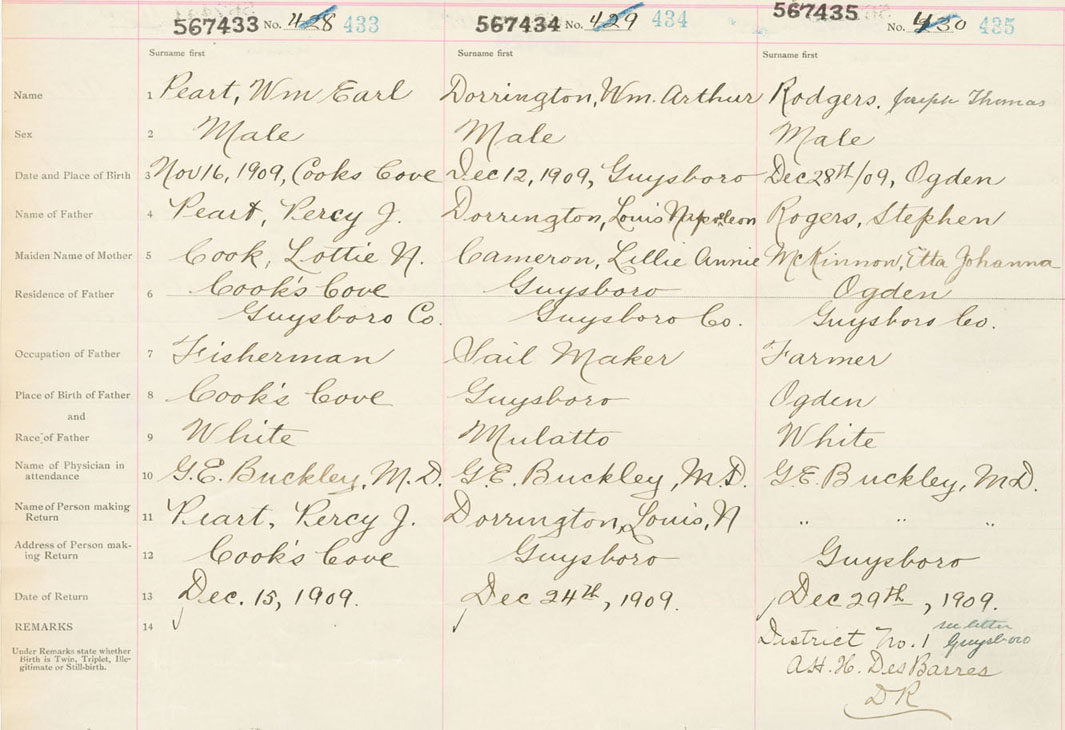 567433 No. 428 433 567434 No. 429 434 567435 No. 430 435
Surname first Surname first Surname first
Name 1 Peart, Wm Earl Dorrington, Wm. Arthur Rodgers, Joseph Thomas
Sex 2 Male Male Male
Date and Place of Birth 3 Nov 16, 1909, Cooks Cove Dec 12, 1909, Guysboro Dec 28th/09, Ogden
Name of Father 4 Peart, Percy J. Dorrington, Louis Napoleon Rogers, Stephen
Maiden Name of Mother 5 Cook, Lottie N. Cameron, Lillie Annie McKinnon, Etta Johanna
Residence of Father 6 Cook's Cove Guysboro Ogden
Guysboro Co. Guysboro Co. Guysboro Co.
Occupation of Father 7 Fisherman Sail Maker Farmer
Place of Birth of Father 8 Cook's Cove Guysboro Ogden
and
Race of Father 9 White Mulatto White
Name of Physician in
attendance 10 G.E. Buckley, M.D. G.E. Buckley, M.D. G.E. Buckley, M.D.
Name of Person making
Return 11 Peart, Percy J. Dorrington, Louis, N " " "
Address of Person mak-
ing Return 12 Cook's Cove Guysboro Guysboro
Date of Return 13 Dec. 15, 1909. Dec 24th, 1909. Dec 29th, 1909.
REMARKS 14 see letter
District No. 1 Guysboro
Under Remarks state whether
Birth is Twin, Triplet, Ille-
gitimate or Still-birth.
A.H.H. DesBarres
DR